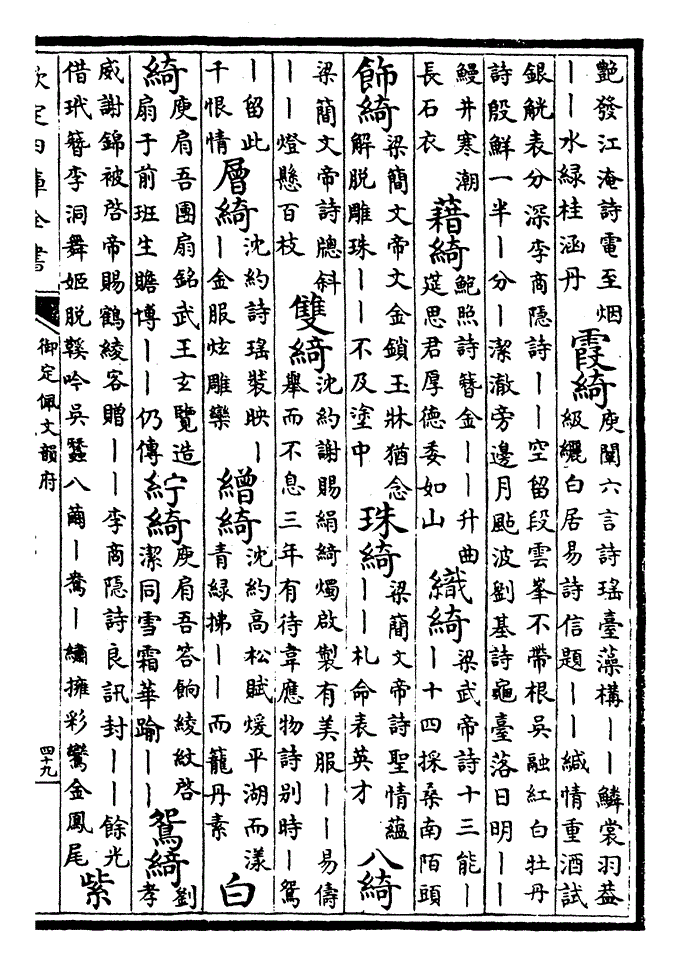 艶發江淹詩電至烟
丨丨水緑桂涵丹
霞綺
庾闡六言詩瑶臺藻構丨丨鱗裳羽葢
級纚白居易詩信題丨丨緘情重酒試
銀觥表分深李商隠詩丨丨空留段雲峯不帶根吳融紅白牡丹
詩殷鮮一半丨分丨潔澈旁邊月颭波劉基詩龜臺落日明丨丨
鰻井寒潮
長石衣
藉綺
鮑照詩簪金丨丨升曲
筵思君厚德委如山
織綺
梁武帝詩十三能丨
丨十四採桑南陌頭
飾綺
梁簡文帝文金鎖玉牀猶念
解脱雕珠丨丨不及塗中
珠綺
梁簡文帝詩聖情藴
丨丨札命表英才
八綺
梁簡文帝詩牕斜
丨丨燈懸百枝
雙綺
沈約謝賜絹綺燭啟製有美服丨丨易儔
舉而不息三年有待韋應物詩别時丨鴛
丨留此
千恨情
層綺
沈約詩瑶裝映丨
丨金服炫雕欒
繒綺
沈約高松賦煖平湖而漾
青緑拂丨丨而籠丹素
白
綺
庾肩吾團扇銘武王玄覽造
扇于前班生贍博丨丨仍傳
紵綺
庾肩吾答餉綾紋啓
潔同雪霜華踰丨丨
鴛綺
劉
孝
威謝錦被啓帝賜鶴綾客贈丨丨李商隠詩良訊封丨丨餘光
借玳簪李洞舞姬脱鞵吟吳蠶八繭丨鴦丨繡擁彩鸞金鳳尾
紫
欽定四庫全書
御定佩文韻府
四十九